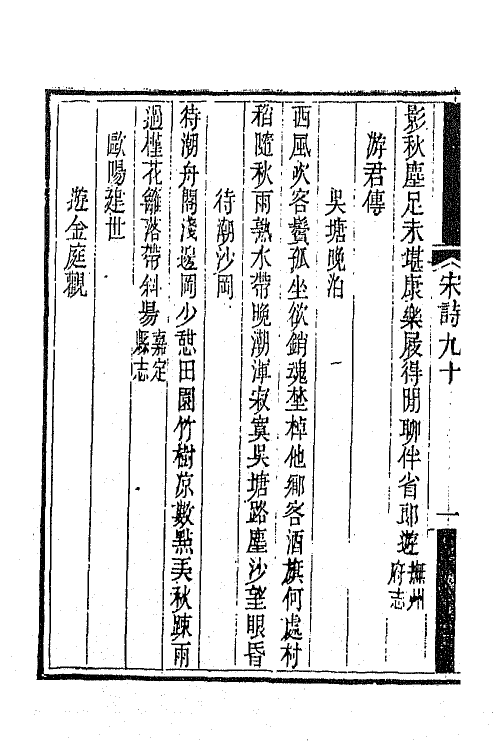 宋詩九十
一
影秋塵足未堪康樂屐得閒聊伴省郎遊撫州府志
游君傳
吳塘晚泊
西風吹客鬢孤坐欲銷魂埜棹他鄉客酒旗何處村
稻隨秋雨熟水帶晚潮渾寂寞吳塘路塵沙望眼昏
待潮沙岡
待潮舟閣淺邊岡少憩田園竹樹凉數點美秋踈雨
過槿花籬落帶斜陽嘉定縣志
歐陽建世
遊金庭觀